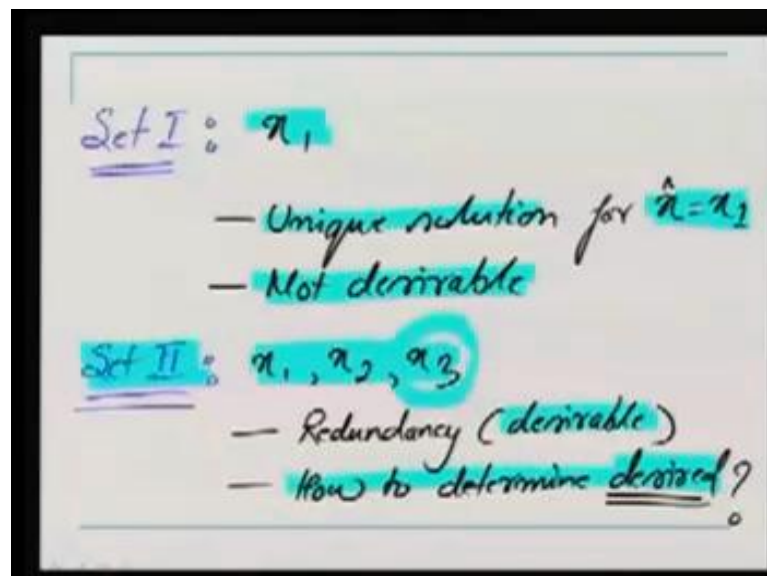 Set I : x₁
— Unique solution for x̂ = x₁
— Not desirable
Set II : x₁, x₂, x₃
— Redundancy (desirable)
— How to determine desired?